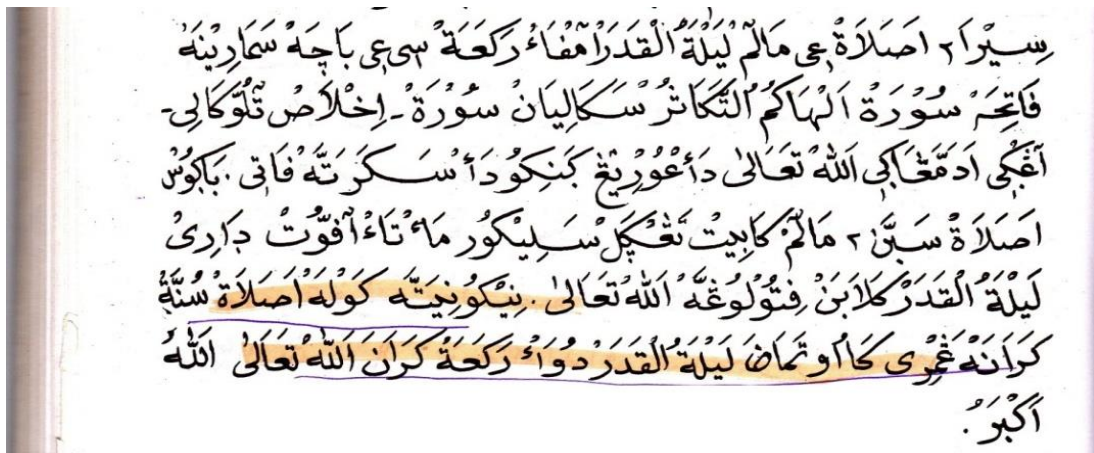 سِيْرَا ٢ اصَلَاةْ عِي مَالَمْ لَيْلَةُ الْقَدَرْ اَمْفَاءْ رَكَعَةْ سِي عِي بَاچَهْ سَمَارِيْنَهْ
فَاتِحَهْ سُوْرَةْ اَلْهَاكُمُ التَّكَاثُرْ سَكَالِيَانْ سُوْرَةْ ـ إِخْلَاصْ تَلَّوْكَالِي ـ
اَللّٰهْ تَعَالٰى دَأْ سَكَرَتَّهْ فَاتِي . بَاكُوْسْ
اصَلَاةْ سَبَّنْ ٢ مَالَمْ كَابِيتْ تَڠْكَلْ سَلِيْكُورْ دَارِيْ
لَيْلَةُ الْقَدَرْ كَلَابَنْ فِتُوْلُوْڠَهْ اَللّٰهْ تَعَالٰى . نِيْكُوْ نِيَتَّهْ كَوْلَهْ اصَلَاةْ سُنَّةْ
كَرَانَهْ لَيْلَةُ الْقَدَرْ دُوَاءْ رَكَعَةْ كَرَانَ اللّٰهْ تَعَالٰى اَللّٰهُ
اَكْبَرُ .